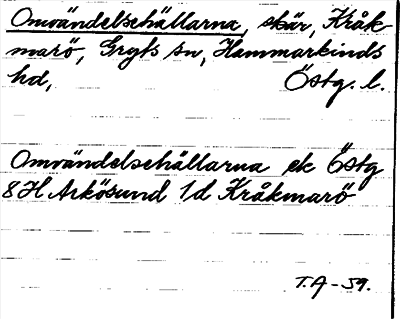 Omvändelsehällarna, skär, Kråk-
marö, Gryts sn, Hammarkinds
hd, Östg. l.
Omvändelsehällarna ek Östg
8H Arkösund 1d Kråkmarö
T.A-59.